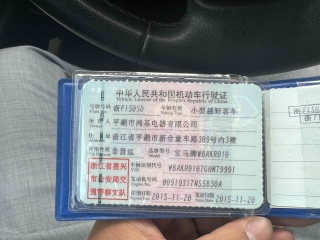 中华人民共和国机动车行驶证
Vehicle License of the People's Republic of China
号牌号码 浙F150S0 车辆类型 小型越野客车
所有人 平湖市鸿基电器有限公司
住址 浙江省平湖市新仓童车路303号内3楼
使用性质 非营运 品牌型号 宝马牌WBAKR010
浙江省嘉兴
市公安局交
通警察支队
车辆识别代号 WBAKR0107G0M79991
发动机号码 00919317N55B30A
注册日期 2015-11-20 发证日期 2015-11-20